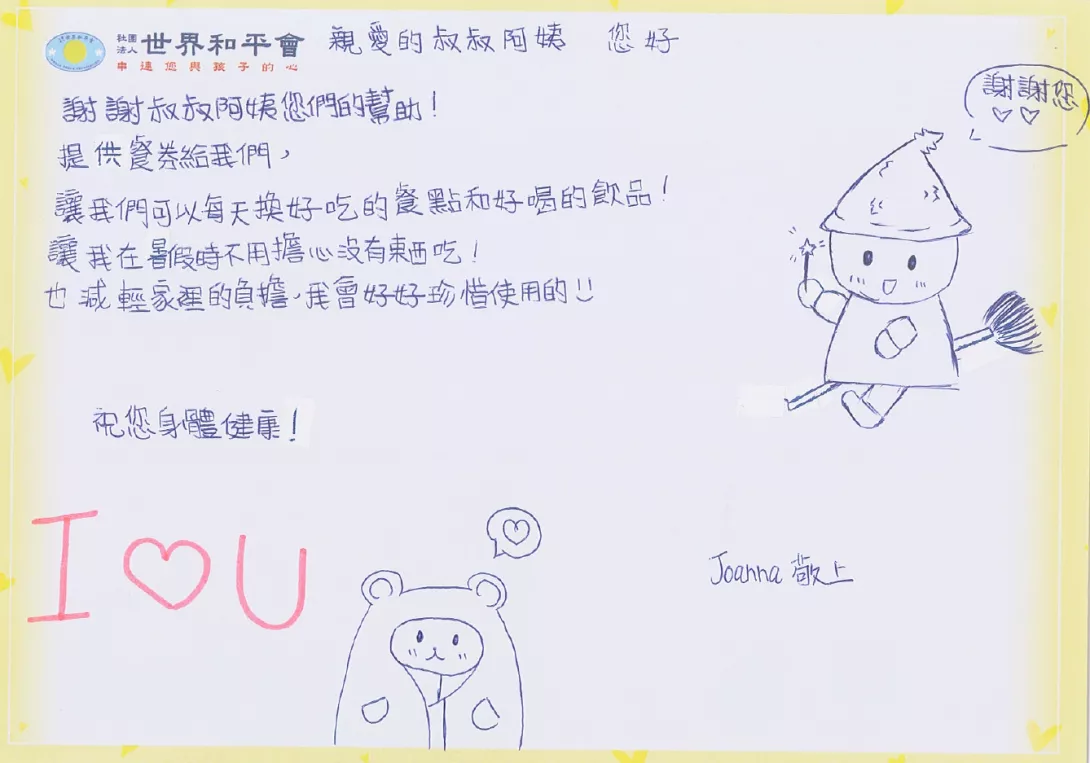 社團法人 世界和平會
串連您與孩子的心
親愛的叔叔阿姨 您好
謝謝您
謝謝叔叔阿姨您們的幫助！
提供餐券給我們，
讓我們可以每天換好吃的餐點和好喝的飲品！
讓我在暑假時不用擔心沒有東西吃！
也減輕家裡的負擔，我會好好珍惜使用的
祝您身體健康！
I ♡ U
Joanna 敬上